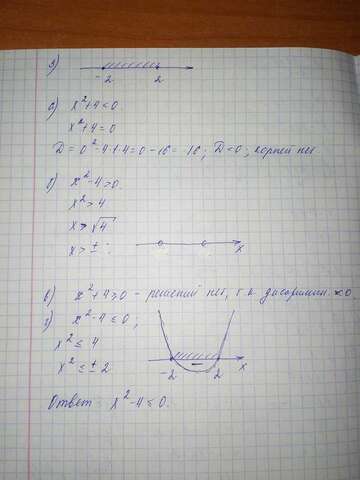 3)
-2 2
а) x²+4<0
x²+4=0
D=0²-4+4=0-16=-16; D<0, корней нет
б) x²-4>0.
x²>4
x>√4
x>±
x
в) x²+4>0 - решений нет, т.к дискримин. <0
г) x²-4≤0;
x²≤4
x²≤±2
-2 2 x
Ответ: x²-4≤0.